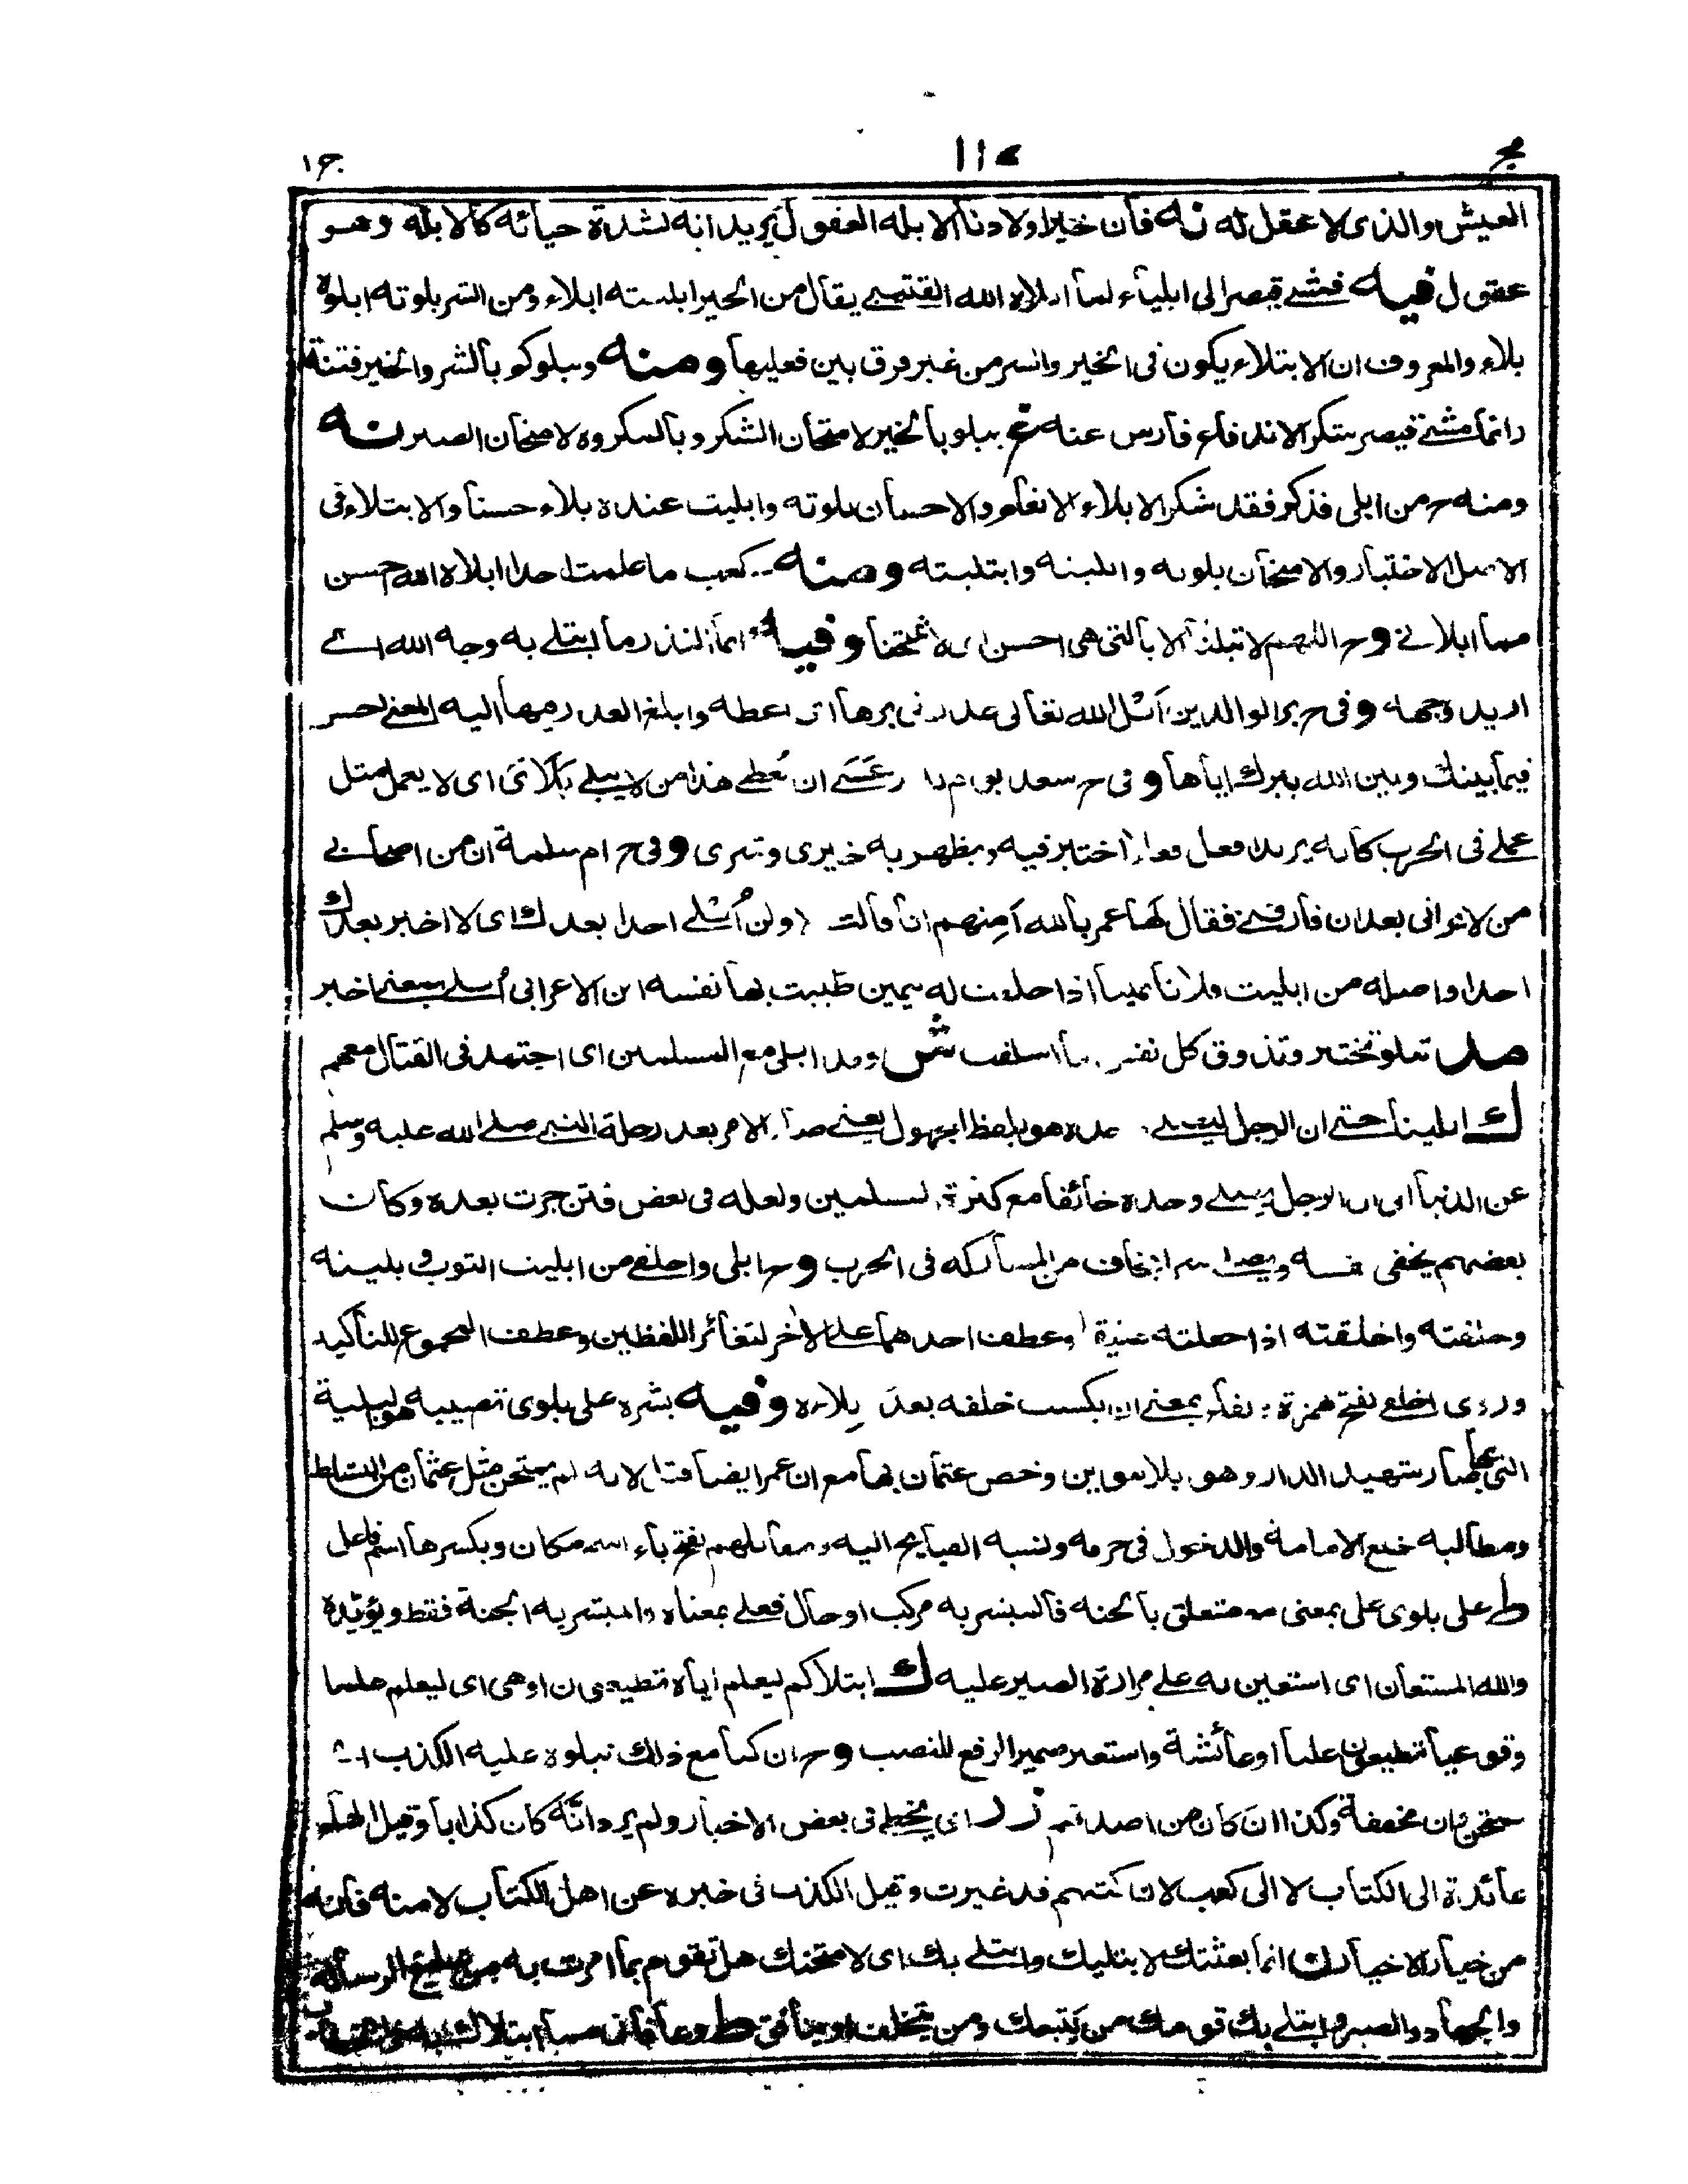 مجر ١١٥ ج١
العيش والذى لا عقل له نه فان خير اولادنا الابله العقول يريد انه لشدة حيائه كالابله وهو
عقول فيه فمشى قيصر الى ايلياء لما ابلاه الله القتيبى يقال من الخير ابليته ابلاء ومن الشر بلوته ابلوه
بلاء والمعروف ان الابتلاء يكون فى الخير والشر من غير فرق بين فعليهما ومنه ونبلوكم بالشر والخير فتنة
وانما مشى قيصر شكرا لاندفاع فارس عنه غ نبلو بالخير لامتحان الشكر وبالمكروه لامتحان الصبر نه
ومنه ح من ابلى فذكر فقد شكر الابلاء الانعام والاحسان بلوته وابليت عنده بلاء حسنا والابتلاء فى
الاصل الاختبار والامتحان بلوته وابليته وابتليته ومنه ح كعب ما علمت احدا ابلاه الله احسن
مما ابلانى وح اللهم لا تبلنا الا بالتى هى احسن اى لا تمتحنا وفيه انما النذر ما ابتلى به وجه الله اى
اريد وجهه وفى ح بر الوالدين ابل الله تعالى عذرا فى برها اى اعطه وابلغ العذر فيها اليه المعنى احسن
فيما بينك وبين الله ببرك اياها وفى ح سعد يوم بدر عسى ان يعطى هذا من لا يبلى بلائى اى لا يعمل مثل
عملى فى الحرب كانه يريد افعل فعلا اختبر فيه ويظهر به خيرى وشرى وفى ح ام سلمة ان من اصحابى
من لا يرانى بعد ان فارقنى فقال لها عمر بالله امنهم انا قالت لا ولن ابلى احدا بعدك اى لا اخبر بعدك
احدا واصله من ابليت فلانا يمينا اذا حلفت له بيمين طيبت بها نفسه ابن الاعرابى ابلى بمعنى اخبر
مد تبلو تختبر وتذوق كل نفس ما اسلفت ش وقد ابلى مع المسلمين اى اجتهد فى القتال معهم
ك ابتلينا حتى ان الرجل ليصلى وحده هو بلفظ المجهول يعنى صار الامر بعد رحلة النبى صلى الله عليه وسلم
عن الدنيا الى ان الرجل يصلى وحده خائفا مع كثرة المسلمين ولعله فى بعض فتن جرت بعده وكان
بعضهم يخفى نفسه ويصلى سرا يخاف من المشاركة فى الحرب وح ابلى واخلقى من ابليت الثوب وبليته
وخلقته واخلقته اذا جعلته عتيقا وعطف احدهما على الاخر لتغائر اللفظين وعطف المجموع للتأكيد
وروى اخلفى بفتح همزة وبفاء بمعنى ان يكسب خلفه بعد بلاءه وفيه بشره على بلوى تصيبه هو البلية
التى بها صار شهيد الدار وهو بلا تنوين وخص عثمان بها مع ان عمر ايضا قتل لانه لم يمتحن مثل عثمان من التسلط
ومطالبة خلع الامامة والدخول فى حرمه ونسبة القبايح اليه ومقابلهم بفتح باء اسم مكان وبكسرها اسم فاعل
ط على بلوى على بمعنى مع متعلق بالجنة فالمبشر به مركب او حال فعلى بمعناه والمبشر به الجنة فقط ويؤيده
والله المستعان اى استعين به على مرارة الصبر عليه ك ابتلاكم ليعلم اياه تطيعون او هى اى ليعلم علما
وقوعيا تطيعون عليا او عائشة واستعير ضمير الرفع للنصب وح ان كنا مع ذلك نبلوه عليه الكذب اى
نمتحن وان مخففة وكذا ان كان من اصدقهم زر اى يخطى فى بعض الاخبار ولم يرد انه كان كذابا وقيل الهاء
عائدة الى الكتاب لا الى كعب لان كتبهم قد غيرت وقيل الكذب فى خبره عن اهل الكتاب لا منه فانه
من خيار الاخيار ن انما بعثتك لابتليك وابتلى بك اى لامتحنك هل تقوم بما امرت به من تبليغ الرسالة
والجهاد والصبر وابتلى بك قومك من يتبعك ومن يتخلف او ينافق ط وعافانى مما ابتلاك به